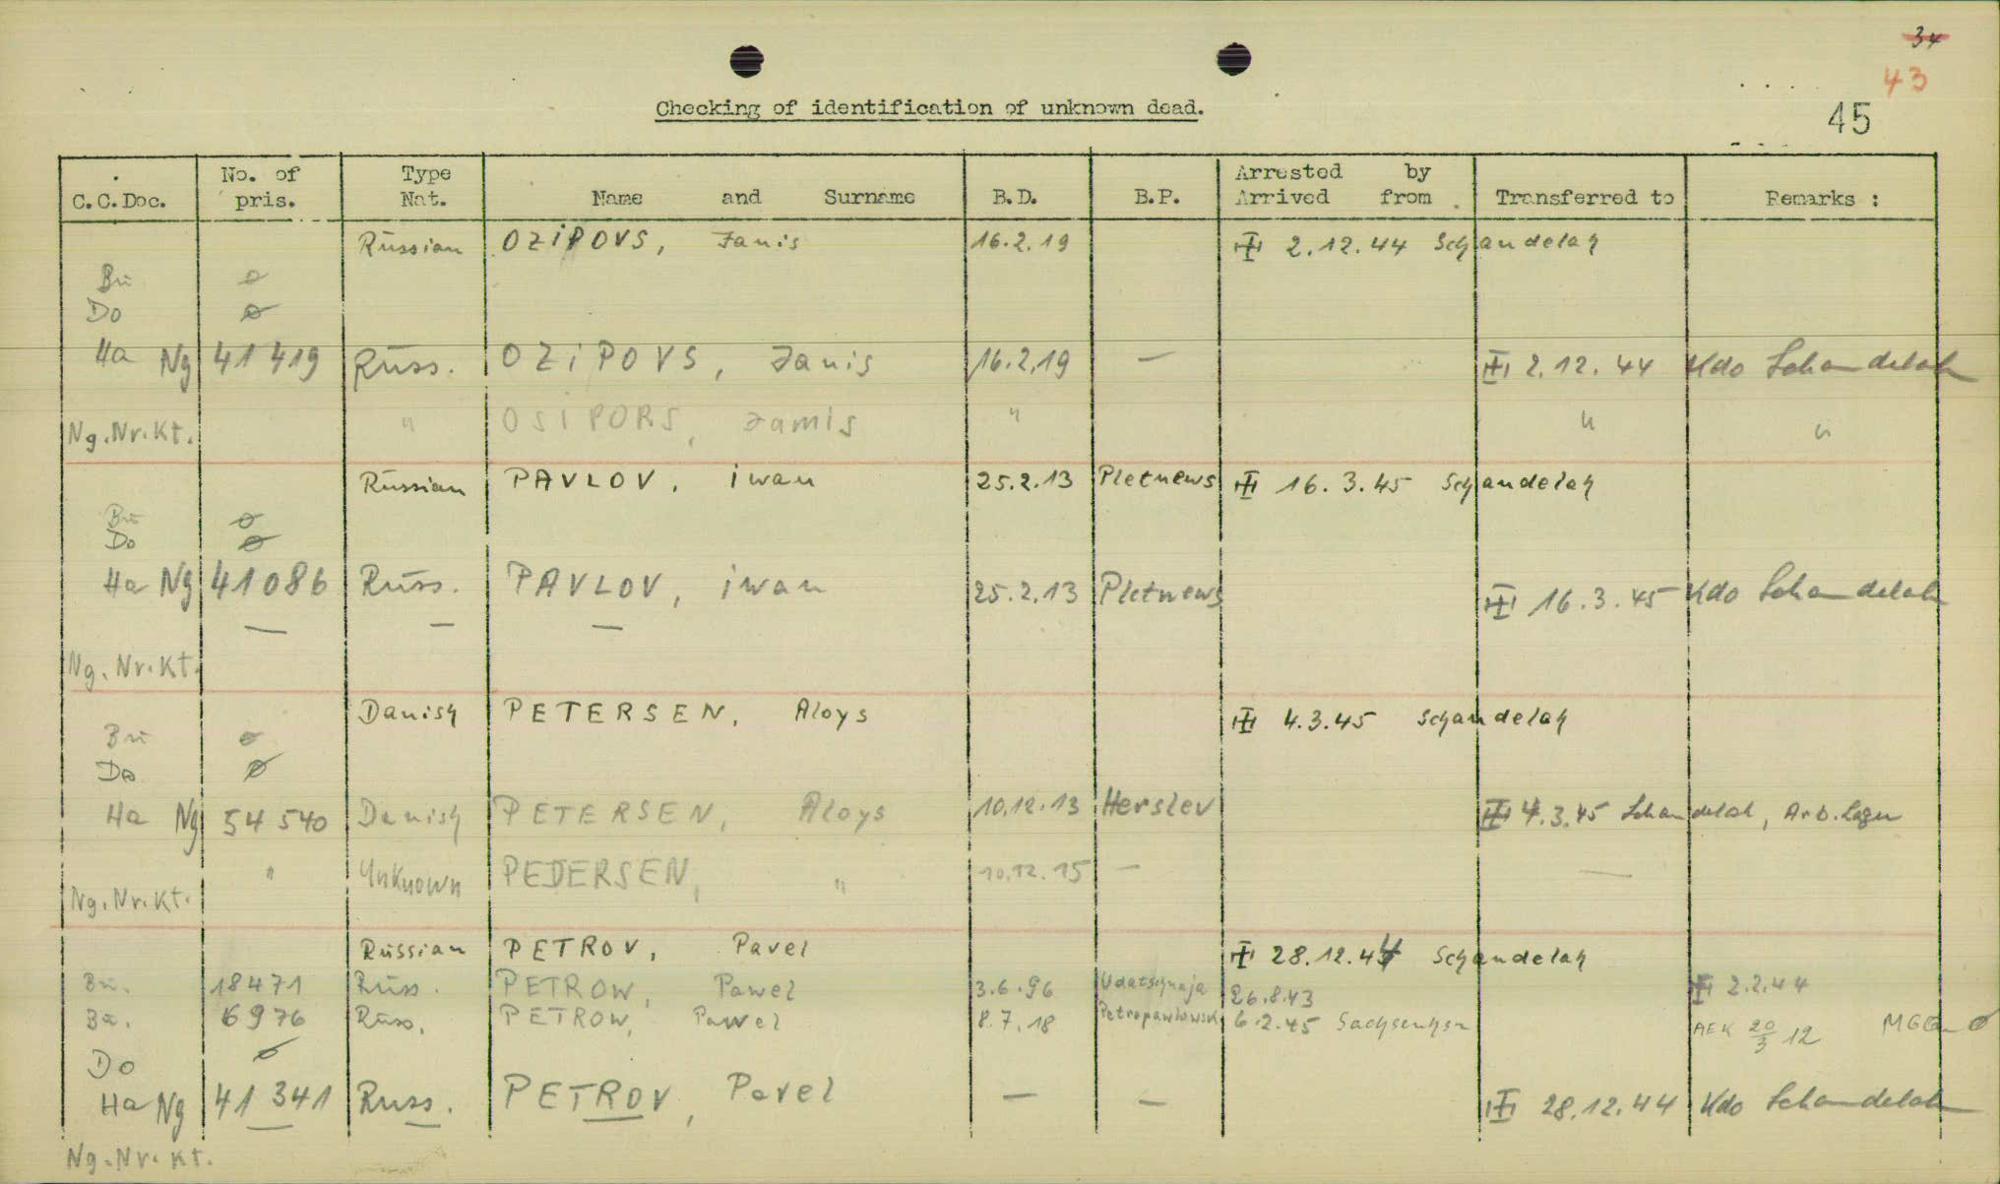 34
43
45
Checking of identification of unknown dead.
C.C.Doc. No. of pris. Type Nat. Name and Surname B.D. B.P. Arrested by Arrived from Transferred to Remarks :
Russian OZiPOVS, Janis 16.2.19 2.12.44 Schandelah
Bu ø
Do ø
Ha Ng 41419 Russ. OZiPOVS, Janis 16.2.19 — 2.12.44 Kdo Schandelah
Ng.Nr.Kt. " OSiPORS, Jamis " " "
Russian PAVLOV, iwan 25.2.13 Pletnews 16.3.45 Schandelah
Bu ø
Do ø
Ha Ng 41086 Russ. PAVLOV, iwan 25.2.13 Pletnews 16.3.45 Kdo Schandelah
— — —
Ng.Nr.Kt.
Danish PETERSEN, Aloys 4.3.45 Schandelah
Bu ø
Do ø
Ha Ng 54540 Danish PETERSEN, Aloys 10.12.13 Herslev 4.3.45 Schandelah, Arb.Lager
Ng.Nr.Kt. " Unknown PEDERSEN, " 10.12.15 — —
Russian PETROV, Pavel 28.12.44 Schandelah
Bu. 18471 Russ. PETROW, Pawel 3.6.96 Udatschnaja 26.8.43 2.2.44
Bu. 6976 Russ. PETROW, Pawel 8.7.18 Petropawlowsk 6.2.45 Sachsenhsn AEK 20/3 12
Do ø
Ha Ng 41341 Russ. PETROV, Pavel — — 28.12.44 Kdo Schandelah
Ng.Nr.Kt.